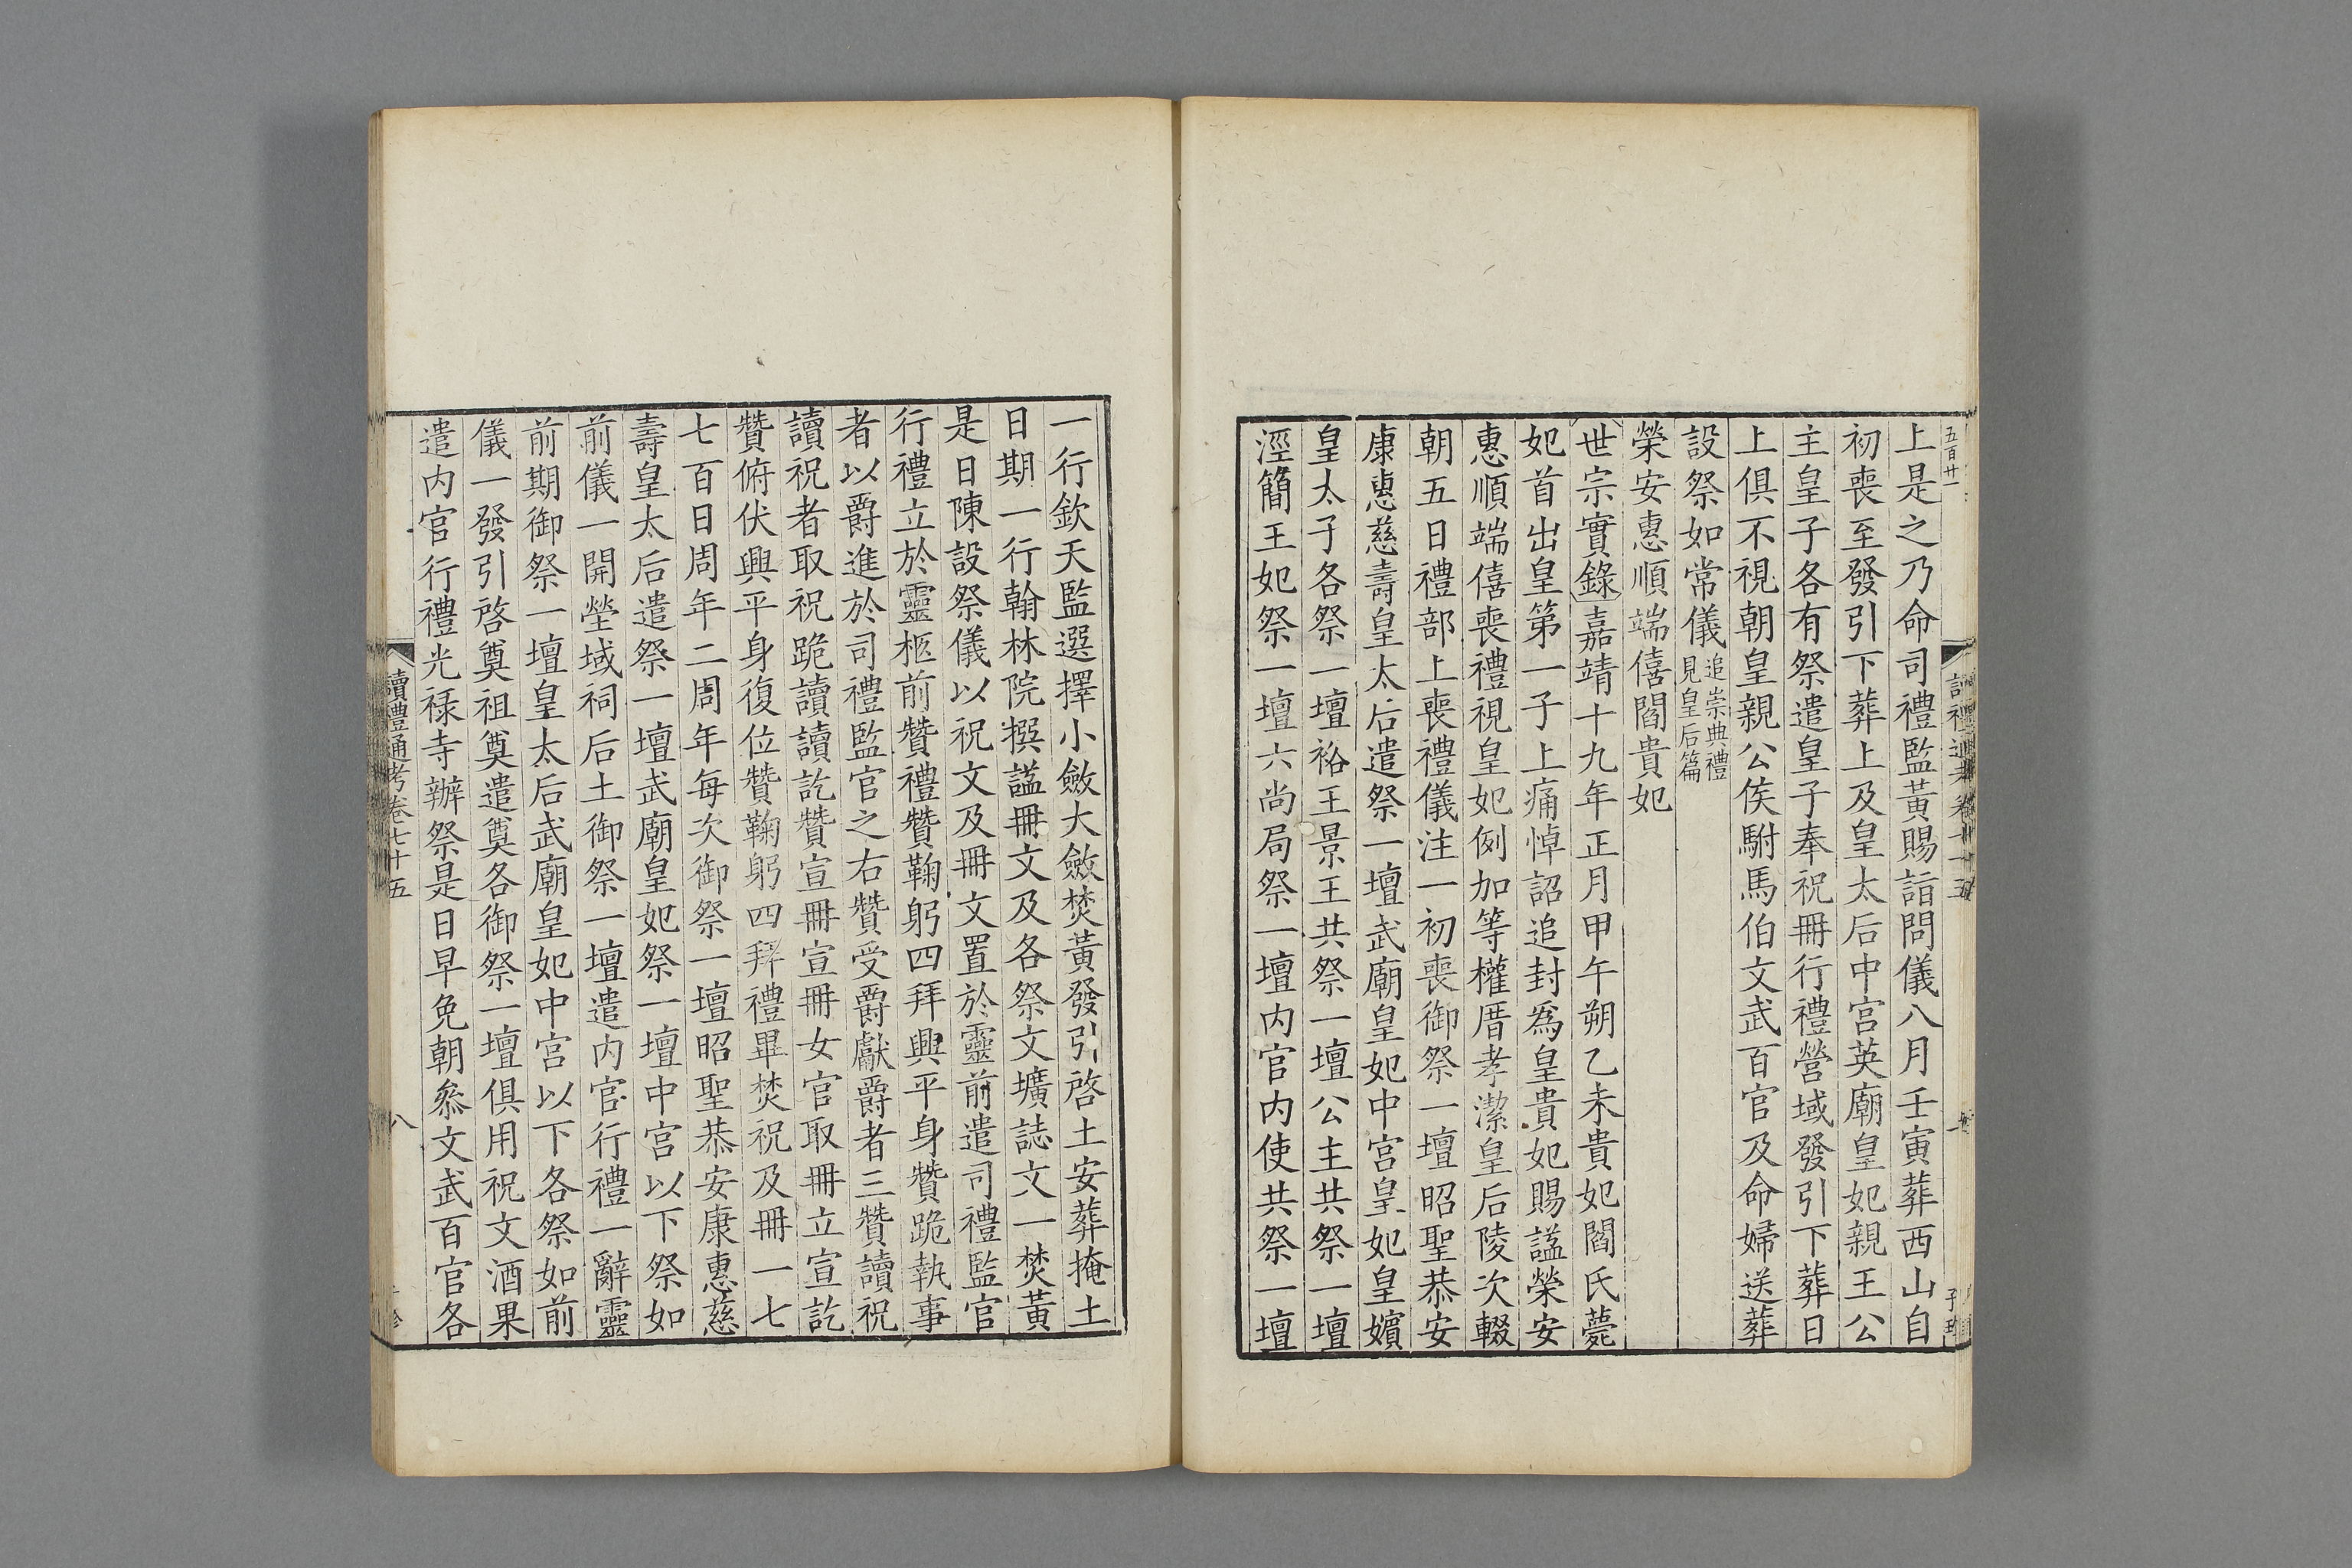 五百廿一
上是之乃命司禮監黃賜詣問儀八月壬寅葬西山自
初喪至發引下葬上及皇太后中宫英廟皇妃親王公
主皇子各有祭遣皇子奉祝冊行禮營域發引下葬日
上俱不視朝皇親公侯駙馬伯文武百官及命婦送葬
設祭如常儀追崇典禮
見皇后篇
榮安惠順端僖閻貴妃
世宗實錄嘉靖十九年正月甲午朔乙未貴妃閻氏薨
妃首出皇第一子上痛悼詔追封爲皇貴妃賜諡榮安
惠順端僖喪禮視皇妃例加等權厝孝潔皇后陵次輟
朝五日禮部上喪禮儀注一初喪御祭一壇昭聖恭安
康惠慈壽皇太后遣祭一壇武廟皇妃中宫皇妃皇嬪
皇太子各祭一壇裕王景王共祭一壇公主共祭一壇
涇簡王妃祭一壇六尚局祭一壇内官内使共祭一壇
一行欽天監選擇小斂大斂焚黃發引啓土安葬掩土
日期一行翰林院撰諡冊文及各祭文壙誌文一焚黃
是日陳設祭儀以祝文及冊文置於靈前遣司禮監官
行禮立於靈柩前贊禮贊鞠躬四拜興平身贊跪執事
者以爵進於司禮監官之右贊受爵獻爵者三贊讀祝
讀祝者取祝跪讀讀訖贊宣冊宣冊女官取冊立宣訖
贊俯伏興平身復位贊鞠躬四拜禮畢焚祝及冊一七
七百日周年二周年每次御祭一壇昭聖恭安康惠慈
壽皇太后遣祭一壇武廟皇妃祭一壇中宫以下祭如
前儀一開塋域祠后土御祭一壇遣内官行禮一辭靈
前期御祭一壇皇太后武廟皇妃中宫以下各祭如前
儀一發引啓奠祖奠遣奠各御祭一壇俱用祝文酒果
遣内官行禮光禄寺辦祭是日早免朝叅文武百官各
讀禮通考卷七十五
八